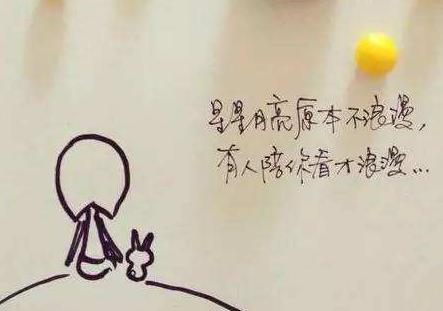 星星月亮原本不浪漫，
有人陪你看才浪漫...